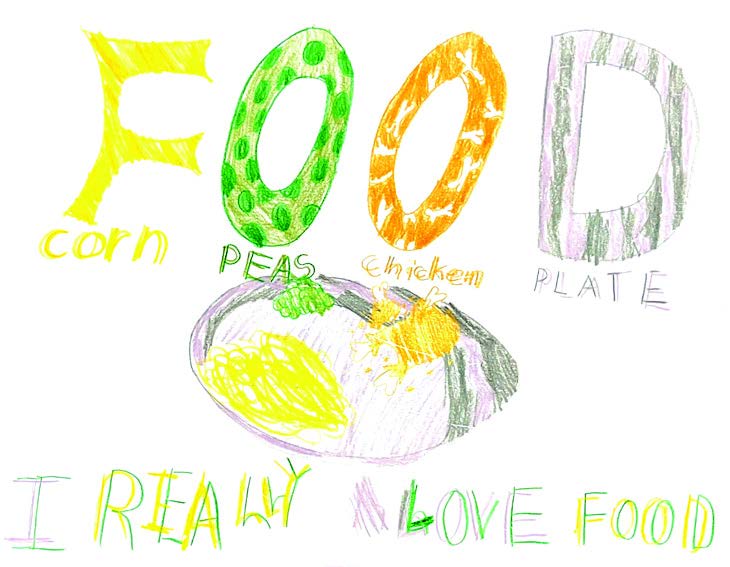 FOOD
corn PEAS chicken PLATE
I REALLY LOVE FOOD